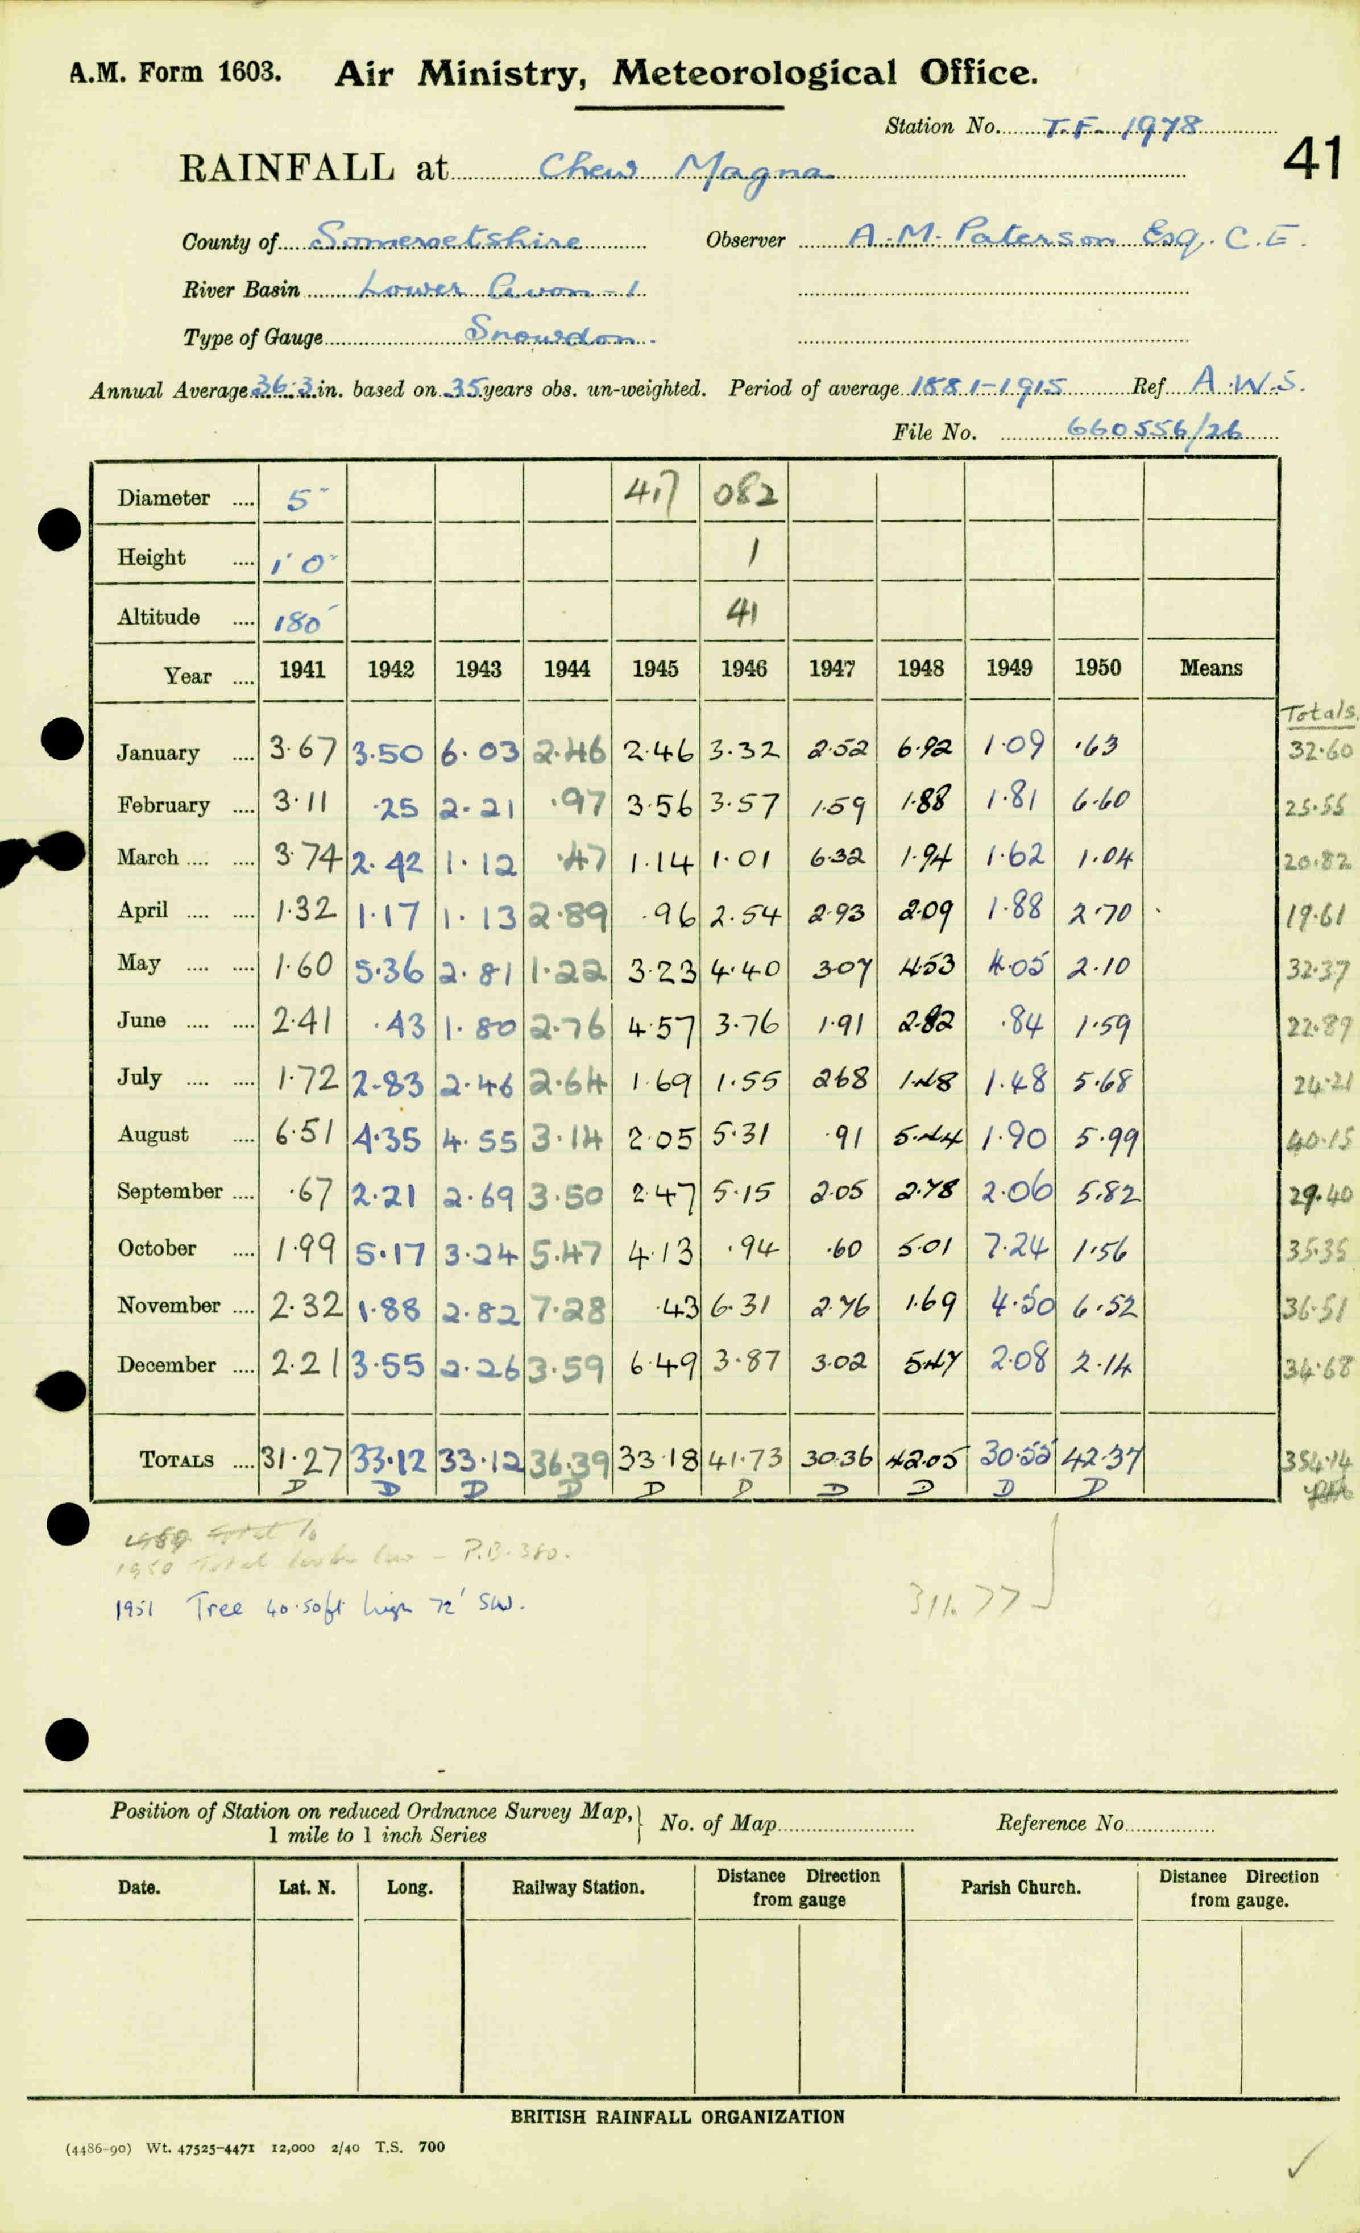 A.M. Form 1603. Air Ministry, Meteorological Office.
Station No. T.F. 1978
41
RAINFALL at Chew Magna
County of Somersetshire Observer A.M. Paterson Esq. C.E.
River Basin Lower Avon - 1
Type of Gauge Snowdon.
Annual Average 36.3 in. based on 35 years obs. un-weighted. Period of average 1881-1915 Ref A.W.S.
File No. 660556/26
Diameter .... 5" 417 082
Height .... 1' 0" 1
Altitude .... 180' 41
Year .... 1941 1942 1943 1944 1945 1946 1947 1948 1949 1950 Means
Totals.
January .... 3.67 3.50 6.03 2.46 2.46 3.32 2.52 6.92 1.09 .63 32.60
February .... 3.11 .25 2.21 .97 3.56 3.57 1.59 1.88 1.81 6.60 25.55
March .... .... 3.74 2.42 1.12 .47 1.14 1.01 6.32 1.94 1.62 1.04 20.82
April .... .... 1.32 1.17 1.13 2.89 .96 2.54 2.93 2.09 1.88 2.70 19.61
May .... .... 1.60 5.36 2.81 1.22 3.23 4.40 3.07 4.53 4.05 2.10 32.37
June .... .... 2.41 .43 1.80 2.76 4.57 3.76 1.91 2.82 .84 1.59 22.89
July .... .... 1.72 2.83 2.46 2.64 1.69 1.55 2.68 1.48 1.48 5.68 24.21
August .... 6.51 4.35 4.55 3.14 2.05 5.31 .91 5.44 1.90 5.99 40.15
September .... .67 2.21 2.69 3.50 2.47 5.15 2.05 2.78 2.06 5.82 29.40
October .... 1.99 5.17 3.24 5.47 4.13 .94 .60 5.01 7.24 1.56 35.35
November .... 2.32 1.88 2.82 7.28 .43 6.31 2.76 1.69 4.50 6.52 36.51
December .... 2.21 3.55 2.26 3.59 6.49 3.87 3.02 5.47 2.08 2.14 34.68
TOTALS .... 31.27 33.12 33.12 36.39 33.18 41.73 30.36 42.05 30.55 42.37 354.14
D D D D D D D D D D
1950 Total looks low - P.B. 380.
1951 Tree 40.50ft high 72' SW.
311.77
Position of Station on reduced Ordnance Survey Map, } No. of Map Reference No.
1 mile to 1 inch Series
Date. Lat. N. Long. Railway Station. Distance Direction from gauge Parish Church. Distance Direction from gauge.
BRITISH RAINFALL ORGANIZATION
(4486-90) Wt. 47525-4471 12,000 2/40 T.S. 700